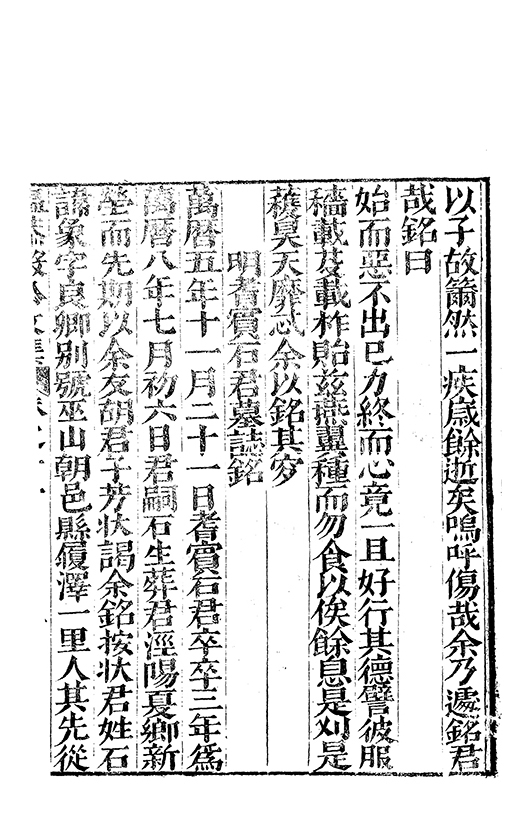 以子故籲然一疾歲餘逝矣嗚呼傷哉余乃遽銘君
哉銘曰
始而惡不出已力終而心竟一且好行其德譬彼服
穡載芟載柞貽茲燕翼種而勿食以俟餘息是刈是
穫昊天靡忒余以銘其穸
明耆賓石君墓誌銘
萬曆五年十一月二十一日耆賓石君卒卒三年爲
萬曆八年七月初六日君嗣石生葬君涇陽夏鄉新
塋而先期以余友胡君子芳狀謁余銘按狀君姓石
諱象字良卿別號巫山朝邑縣履澤一里人其先從